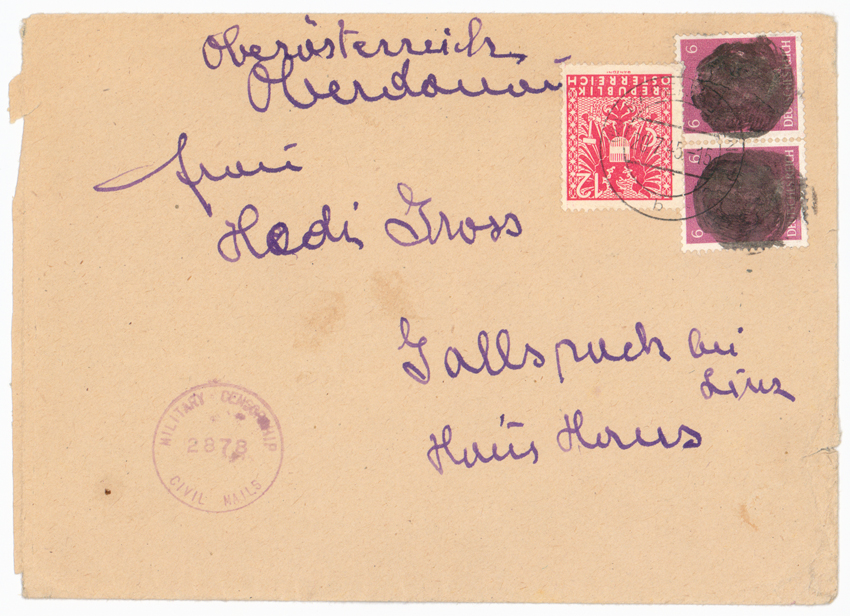 Oberösterreich
Oberdonau
REPUBLIK
ÖSTERREICH
12
6
6
DEU REICH
6
6
DEU REICH
frau
Hedi Gross
Gallspach bei
Linz
Haus Haus
MILITARY CENSORSHIP
2878
CIVIL MAILS